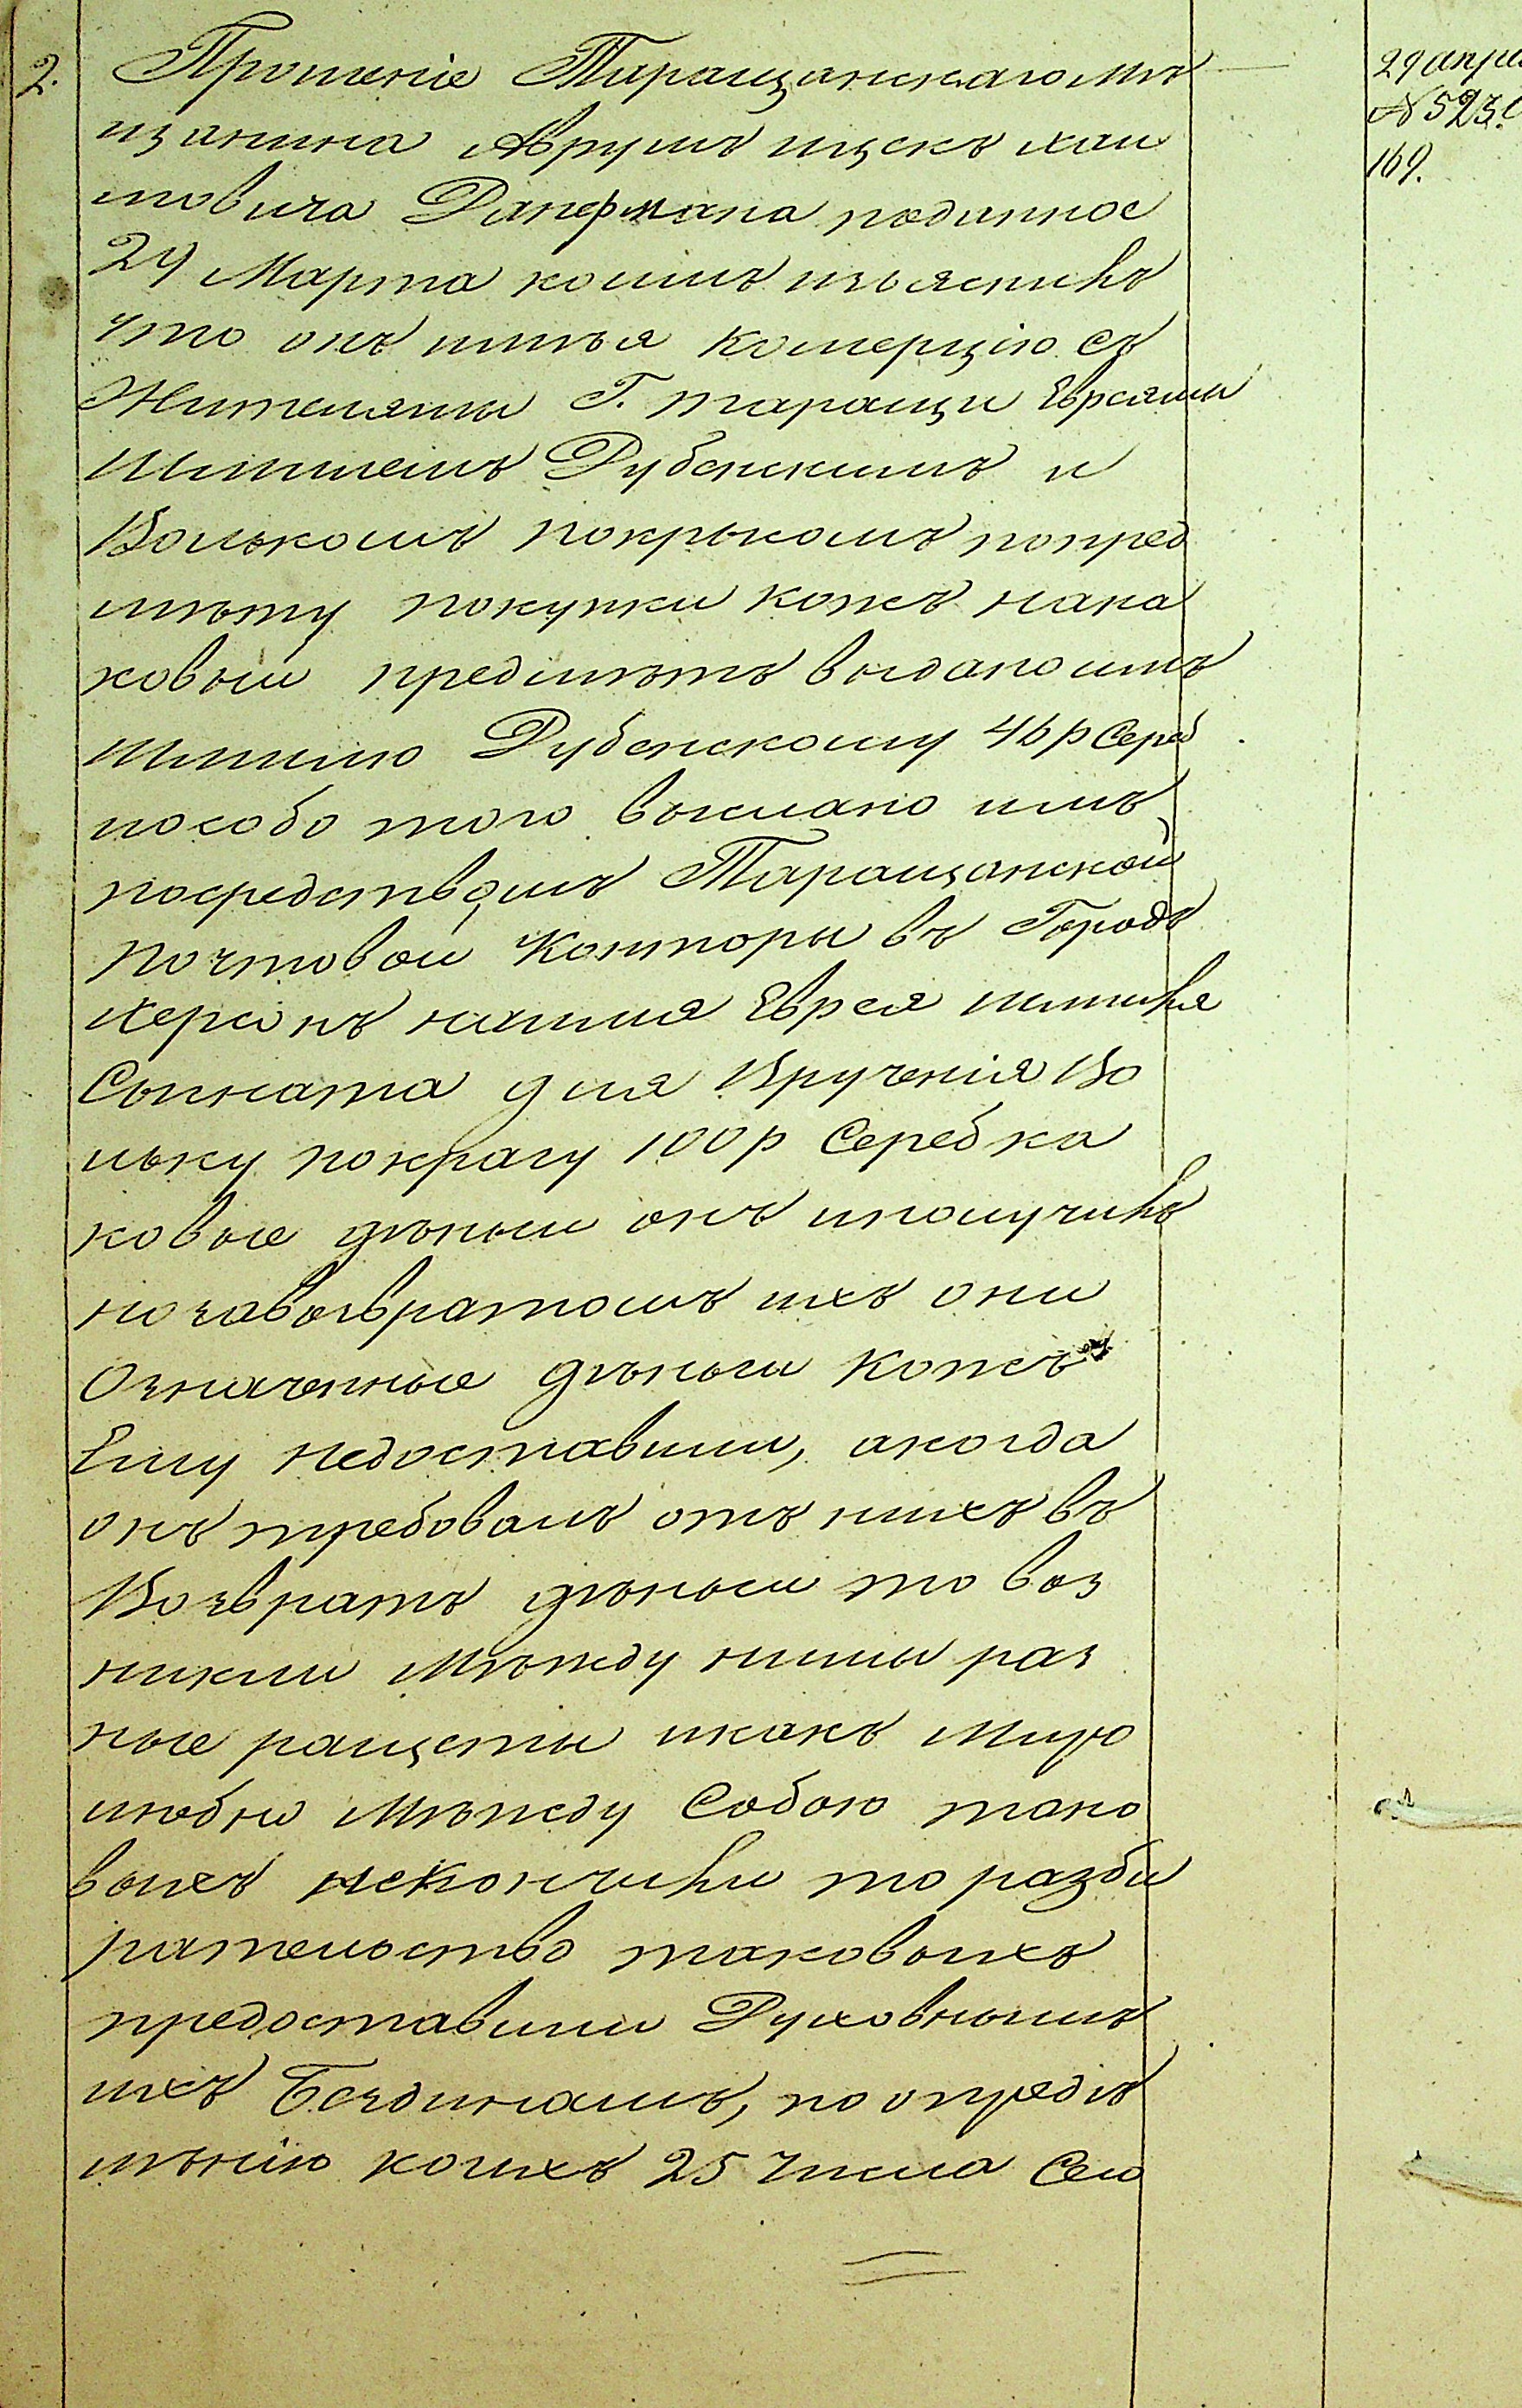 2. Прошеніе Таращанскаго мѣ
щанина Аврумъ ицскъ хаи
мовича Данфмана поданное
29 Марта коимъ изьяснилъ
что онъ имѣя комерцію съ
Жителями Г. таращи Евреями
Шмилемъ Дубенскимъ и
Волькомъ покрысомъ попред
мѣту покупки кожъ нака
ковый предмѣтъ выдано имъ
Шмилю Дубенскому 46 р Сереб
пособо того выслано имъ
посредствомъ Таращанской
почтовой Конторы въ Городъ
херсонъ наимя Еврея шмиля
для Вручения Во
льку покрасу 100 р Сереб ка
ковые дѣньги онъ иполучилъ
но завозвратомъ ихъ они
Означенные дѣньги кожъ
Ему недоставили, акогда
онъ требовалъ отъ нихъ въ
Возвратъ дѣньги то воз
никли Мѣжду ними раз
ные ращеты икакъ миро
любно Мѣжду Собою тако
выхъ некончили то разби
рательство таковыхъ
предоставили Духовнымъ
ихъ Бездинамъ, по опредѣ
лѣнію коихъ 25 числа Сего
29 апре
№ 523.
169.